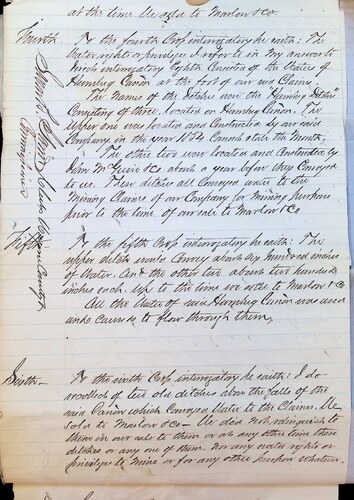 at the time We sold to Marlow & Co.
Fourth
To the fourth Cross interrogatory he saith: The
Water right or privilege I refer to in my answer to
interrogatory Eighth Consisted of the Waters of
Humbug Cañon at the foot of our said Claims.
The Names of the Ditches were the "Humbug Ditches"
Consisting of three, located on Humbug Cañon. The
upper one was located and Constructed by our said
Company in the year
The other two were located and Constructed by
John McGuire & Co about a year before they Conveyed
to us. These ditches all Conveyed water to the
Mining Claims of our Company for Mining purposes
prior to the time of our sale to Marlow & Co
Clerk
County
Fifth
To the fifth Cross interrogatory he saith: The
upper ditch would Convey about six hundred inches
of Water. And the other two about two hundred
inches each. Up to the time we sold to Marlow & Co
All the Water of said Humbug Cañon was used
and caused to flow through them.
Sixth -
To the sixth Cross interrogatory he saith: I do
recollect of two old ditches above the falls of the
said Cañon which Conveyed Water to the Claims We
sold to Marlow & Co - We did not relinquish to
them in our sale to them or at any other time those
ditches or any one of them. Nor any water rights or
privilege to mine or for any other purpose whatever.